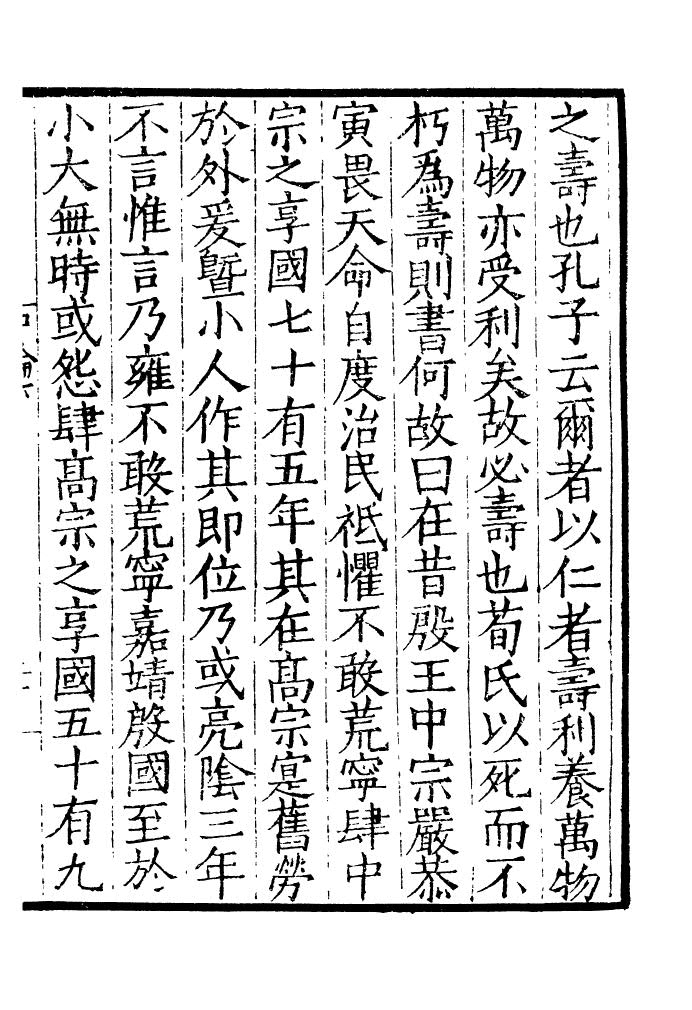 之壽也孔子云爾者以仁者壽利養萬物
萬物亦受利矣故必壽也荀氏以死而不
朽爲壽則書何故曰在昔殷王中宗嚴恭
寅畏天命自度治民祗懼不敢荒寧肆中
宗之享國七十有五年其在髙宗寔舊勞
於外爰曁小人作其即位乃或亮陰三年
不言惟言乃雍不敢荒寧嘉靖殷國至於
小大無時或怨肆髙宗之享國五十有九